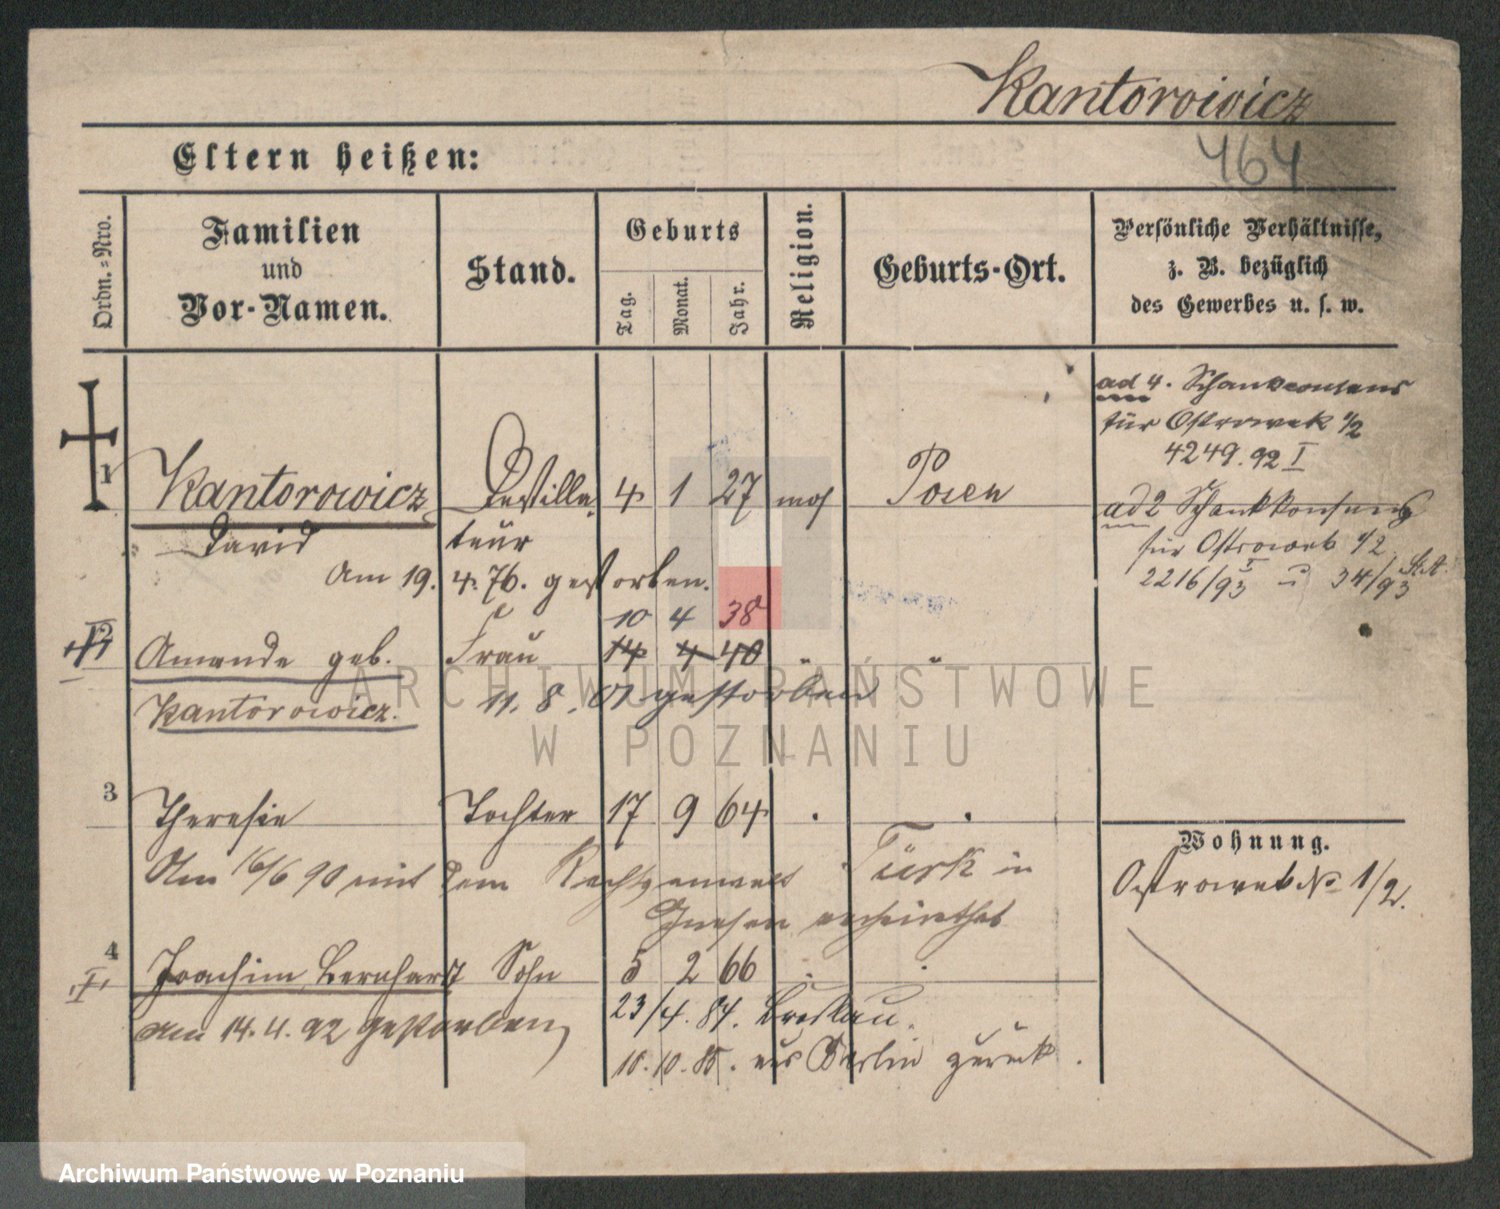 Kantorowicz
464
Eltern heißen:
Ordn.=Nro.
Familien
und
Vor-Namen.
Stand.
Geburts
Tag.
Monat.
Jahr.
Religion.
Geburts-Ort.
Persönliche Verhältnisse,
z. B. bezüglich
des Gewerbes u. s. w.
1 Kantorowicz Destilla- 4 1 27 mos Posen
David teur
Am 19. 4. 76. gestorben.
10 4 38
2 Amande geb. Frau 14 4 40 " "
Kantorowicz. 11. 8. 01 gestorben
3 Theresie Tochter 17 9 64 . .
Am 16/6 90 mit dem Rechtsanwalt Türk in
Gnesen verheirathet
4 Joachim Bernhard Sohn 5 2 66 . .
am 14. 4. 92 gestorben 23/4. 84. Breslau.
10. 85. aus Berlin zurück.
ad 4. Schankconsens
für Ostrowek 1/2
4249. 92 I
ad 2 Schankkonsens
für Ostrowek 1/2
2216/93 I u 34/93 St.A.
Wohnung.
Ostrowek No 1/2.
ARCHIWUM PAŃSTWOWE
W POZNANIU
Archiwum Państwowe w Poznaniu